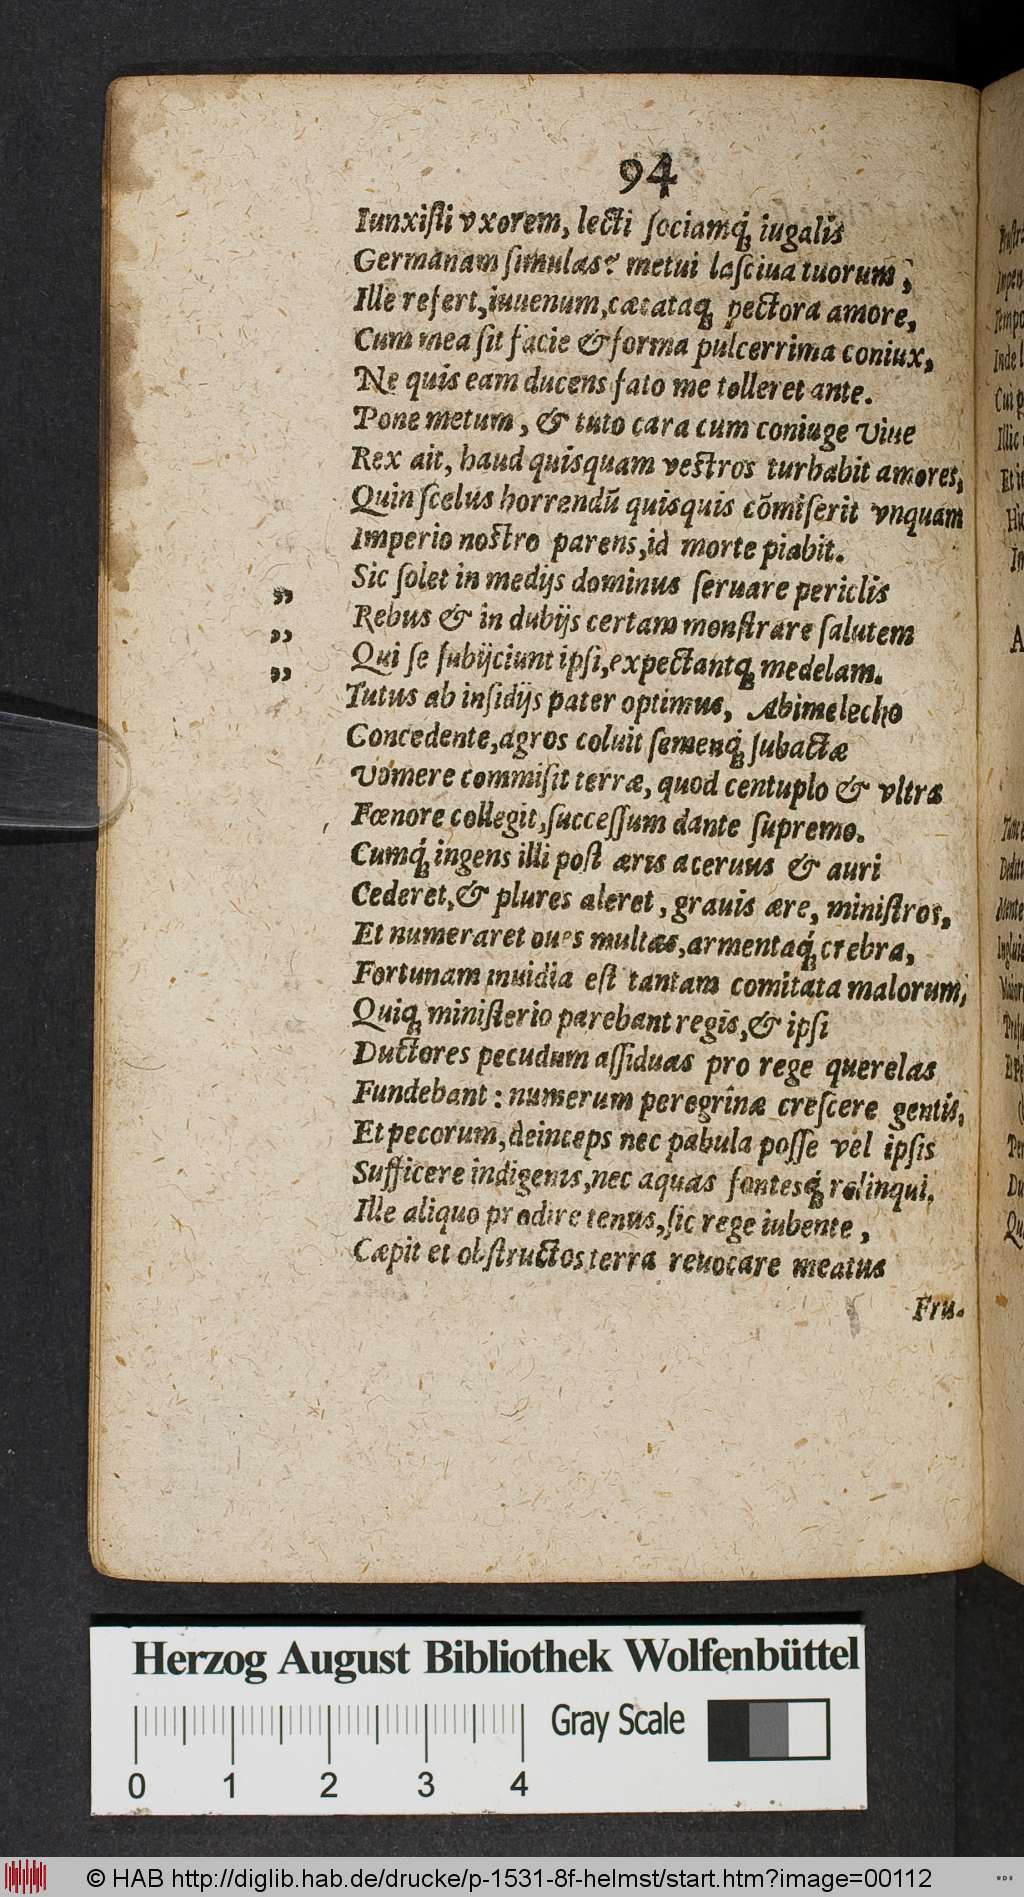 94
Iunxiſti vxorem, lecti ſociamq́; iugalis
Germanam ſimulas? metui laſciua tuorum,
Ille refert, iuuenum, cæcataq; pectora amore,
Cum mea ſit facie & forma pulcerrima coniux,
Ne quis eam ducens fato me tolleret ante.
Pone metum, & tuto cara cum coniuge viue
Rex ait, haud quisquam vestros turbabit amores,
Quin ſcelus horrendū quisquis cōmiſerit vnquam
Imperio nostro parens, id morte piabit.
„ Sic ſolet in medijs dominus ſeruare periclis
„ Rebus & in dubijs certam monſtrare ſalutem
„ Qui ſe ſubijciunt ipſi, expectantq; medelam.
Tutus ab inſidijs pater optimus, Abimelecho
Concedente, agros coluit ſemenq́; ſubactæ
Vomere commiſit terræ, quod centuplo & vltra
Fœnore collegit, ſucceſſum dante ſupremo.
Cumq́; ingens illi poſt æris aceruus & auri
Cederet, & plures aleret, grauis ære, miniſtros,
Et numeraret oues multas, armentaq́; crebra,
Fortunam inuidia eſt tantam comitata malorum,
Quiq; miniſterio parebant regis, & ipſi
Ductores pecudum aſſiduas pro rege querelas
Fundebant: numerum peregrinæ creſcere gentis,
Et pecorum, deinceps nec pabula poſſe vel ipſis
Sufficere indigenis, nec aquas fontesq́; relinqui.
Ille aliquo prodire tenus, ſic rege iubente,
Cæpit et obſtructos terra reuocare meatus
Fru-
Herzog August Bibliothek Wolfenbüttel
Gray Scale
0 1 2 3 4
© HAB http://diglib.hab.de/drucke/p-1531-8f-helmst/start.htm?image=00112